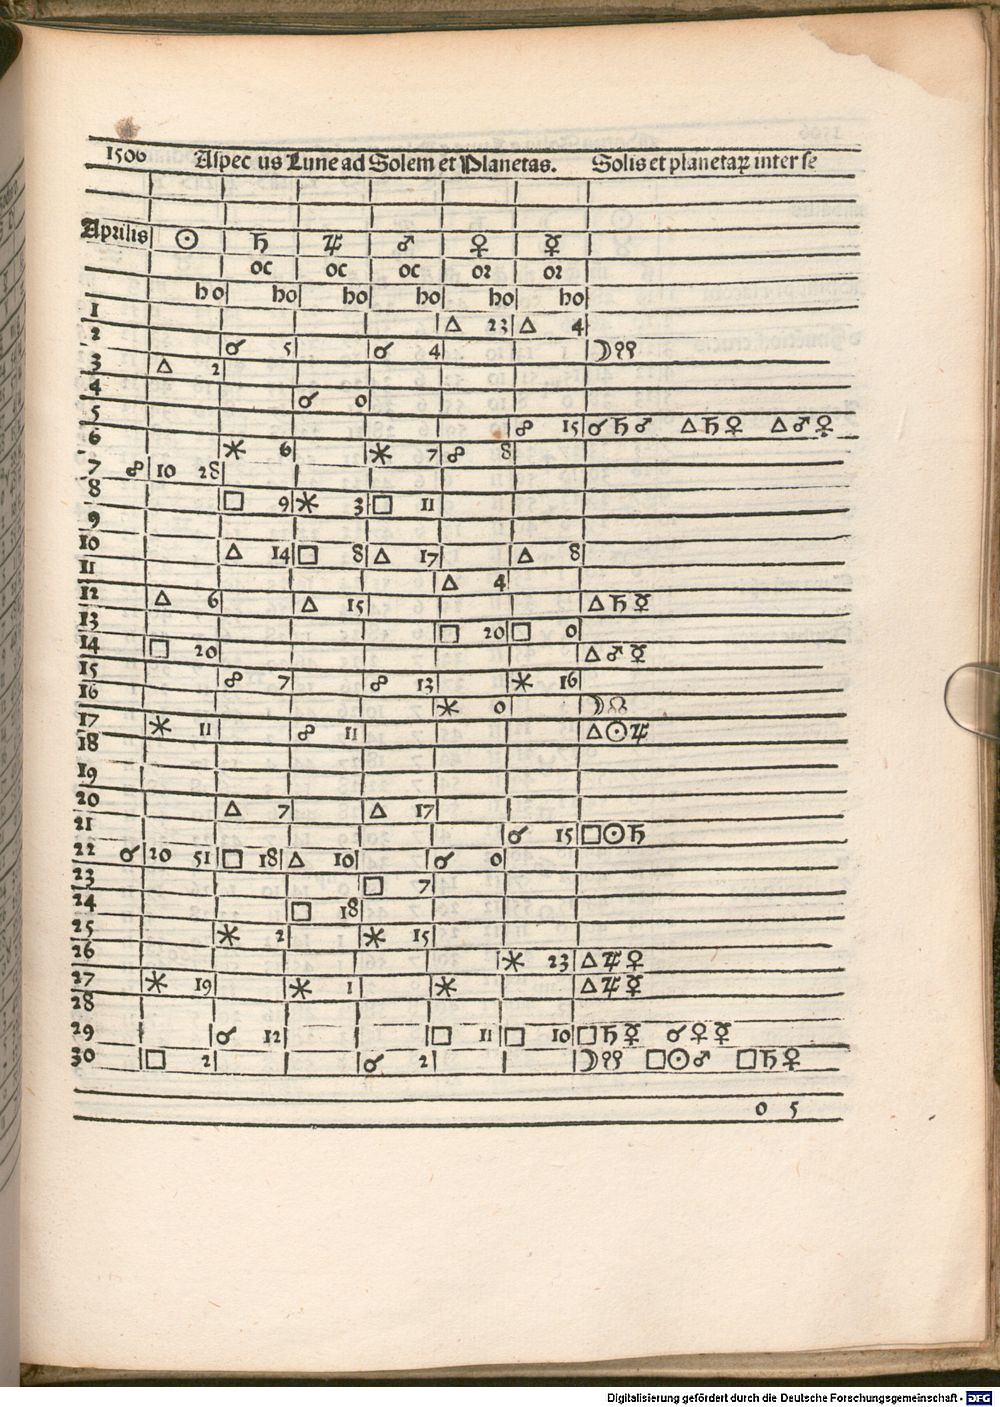 1506 Aspec us Lune ad Solem et Planetas. Solis et planetaꝝ inter se
Aprilis ☉ ♄ ♃ ♂ ♀ ☿
oc oc oc or or
ho ho ho ho ho ho
1 △ 23 △ 4
2 ☌ 5 ☌ 4 ☽☋
3 △ 2
4 ☌ 0
5 ☍ 15 ☌♄♂ △♄♀ △♂♀
6 ⚹ 6 ⚹ 7 ☍ 8
7 ☍ 10 28
8 □ 9 ⚹ 3 □ 11
9
10 △ 14 □ 8 △ 17 △ 8
11 △ 4
12 △ 6 △ 15 △♄☿
13 □ 20 □ 0
14 □ 20 △♂☿
15 ☍ 7 ☍ 13 ⚹ 16
16 ⚹ 0 ☽☊
17 ⚹ 11 ☍ 11 △☉♃
18
19
20 △ 7 △ 17
21 ☌ 15 □☉♄
22 ☌ 20 51 □ 18 △ 10 ☌ 0
23 □ 7
24 □ 18
25 ⚹ 2 ⚹ 15
26 ⚹ 23 △♃♀
27 ⚹ 19 ⚹ 1 ⚹ △♃☿
28
29 ☌ 12 □ 11 □ 10 □♄☿ ☌♀☿
30 □ 2 ☌ 2 ☽☋ □☉♂ □♄♀
0 5
Digitalisierung gefördert durch die Deutsche Forschungsgemeinschaft - DFG